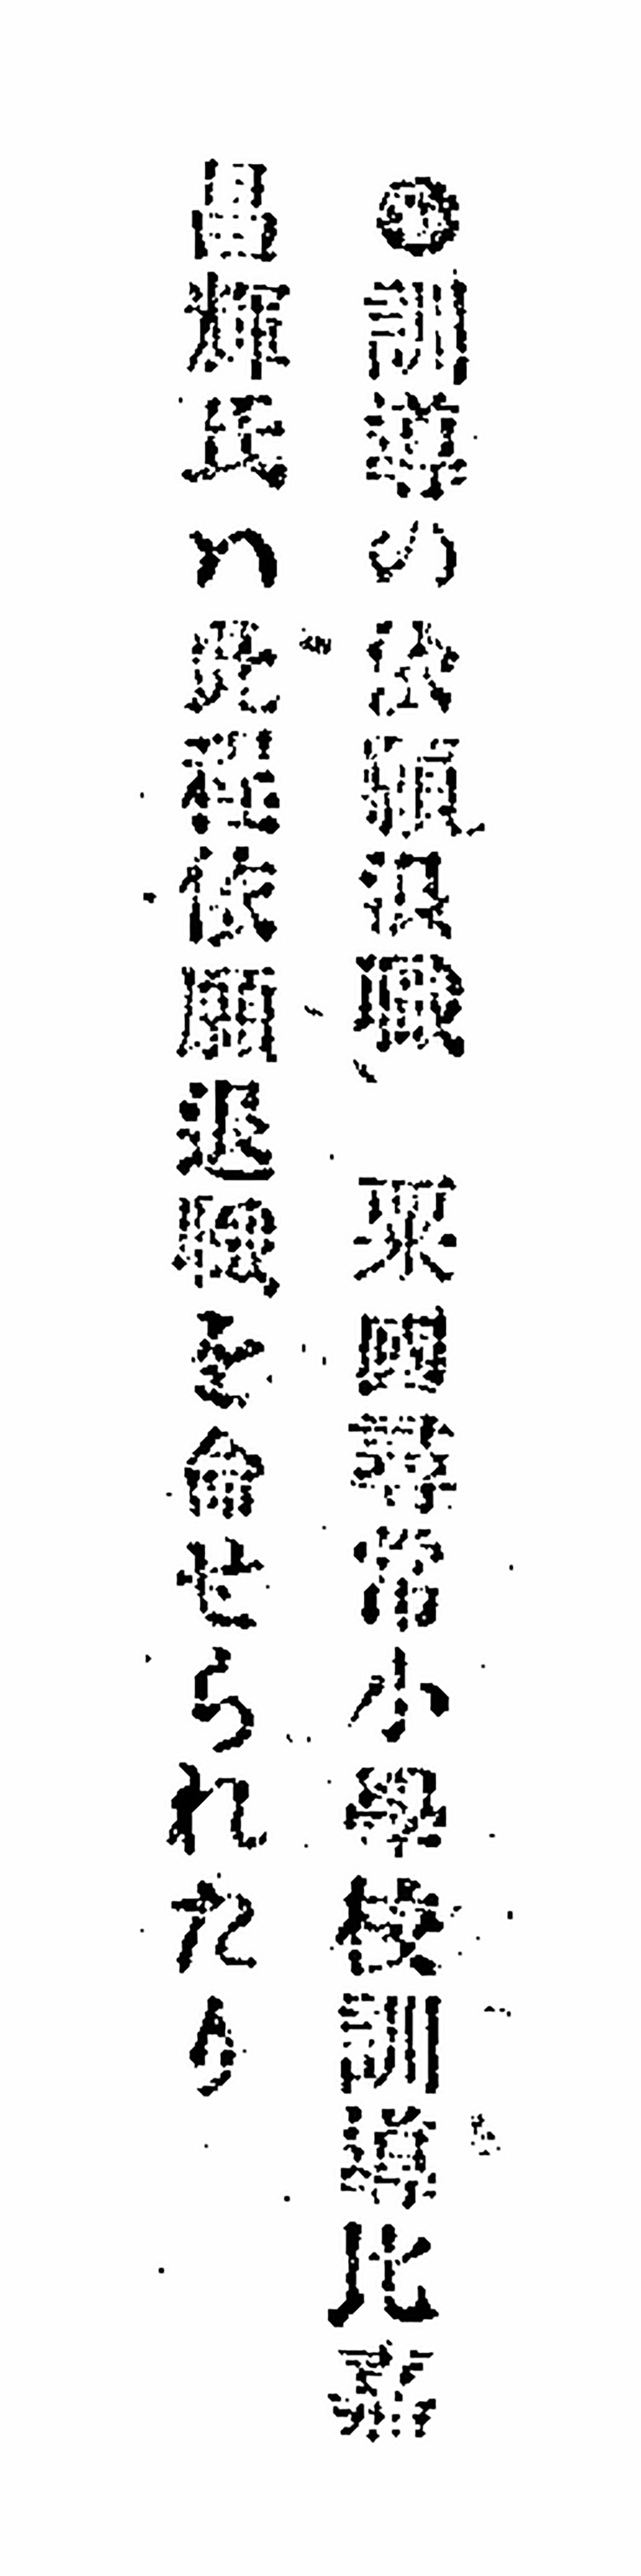 ◉訓導の依願退職 采田尋常小學校訓導比嘉
昌輝氏ハ此程依願退職を命せられたり